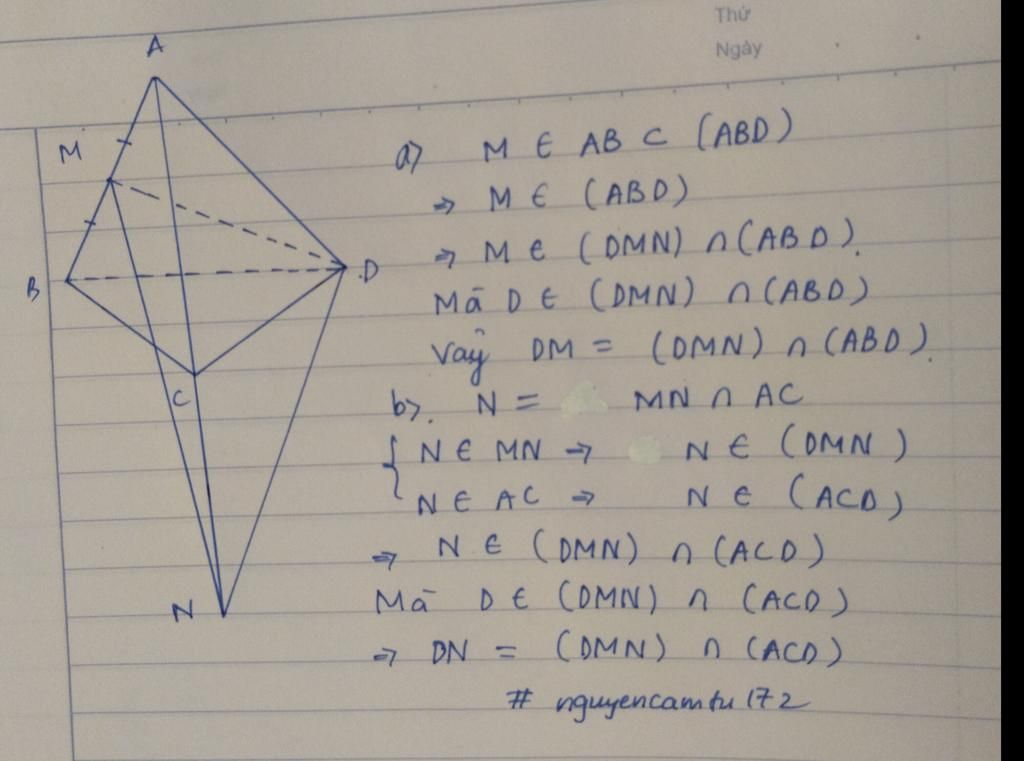 Thứ
Ngày
A
M
B
D
C
N
a) M ∈ AB ⊂ (ABD)
⇒ M ∈ (ABD)
⇒ M ∈ (DMN) ∩ (ABD).
Mà D ∈ (DMN) ∩ (ABD)
Vậy DM = (DMN) ∩ (ABD).
b). N = MN ∩ AC
{ N ∈ MN ⇒ N ∈ (DMN)
N ∈ AC ⇒ N ∈ (ACD)
⇒ N ∈ (DMN) ∩ (ACD)
Mà D ∈ (DMN) ∩ (ACD)
⇒ DN = (DMN) ∩ (ACD)
# nguyencamtu172